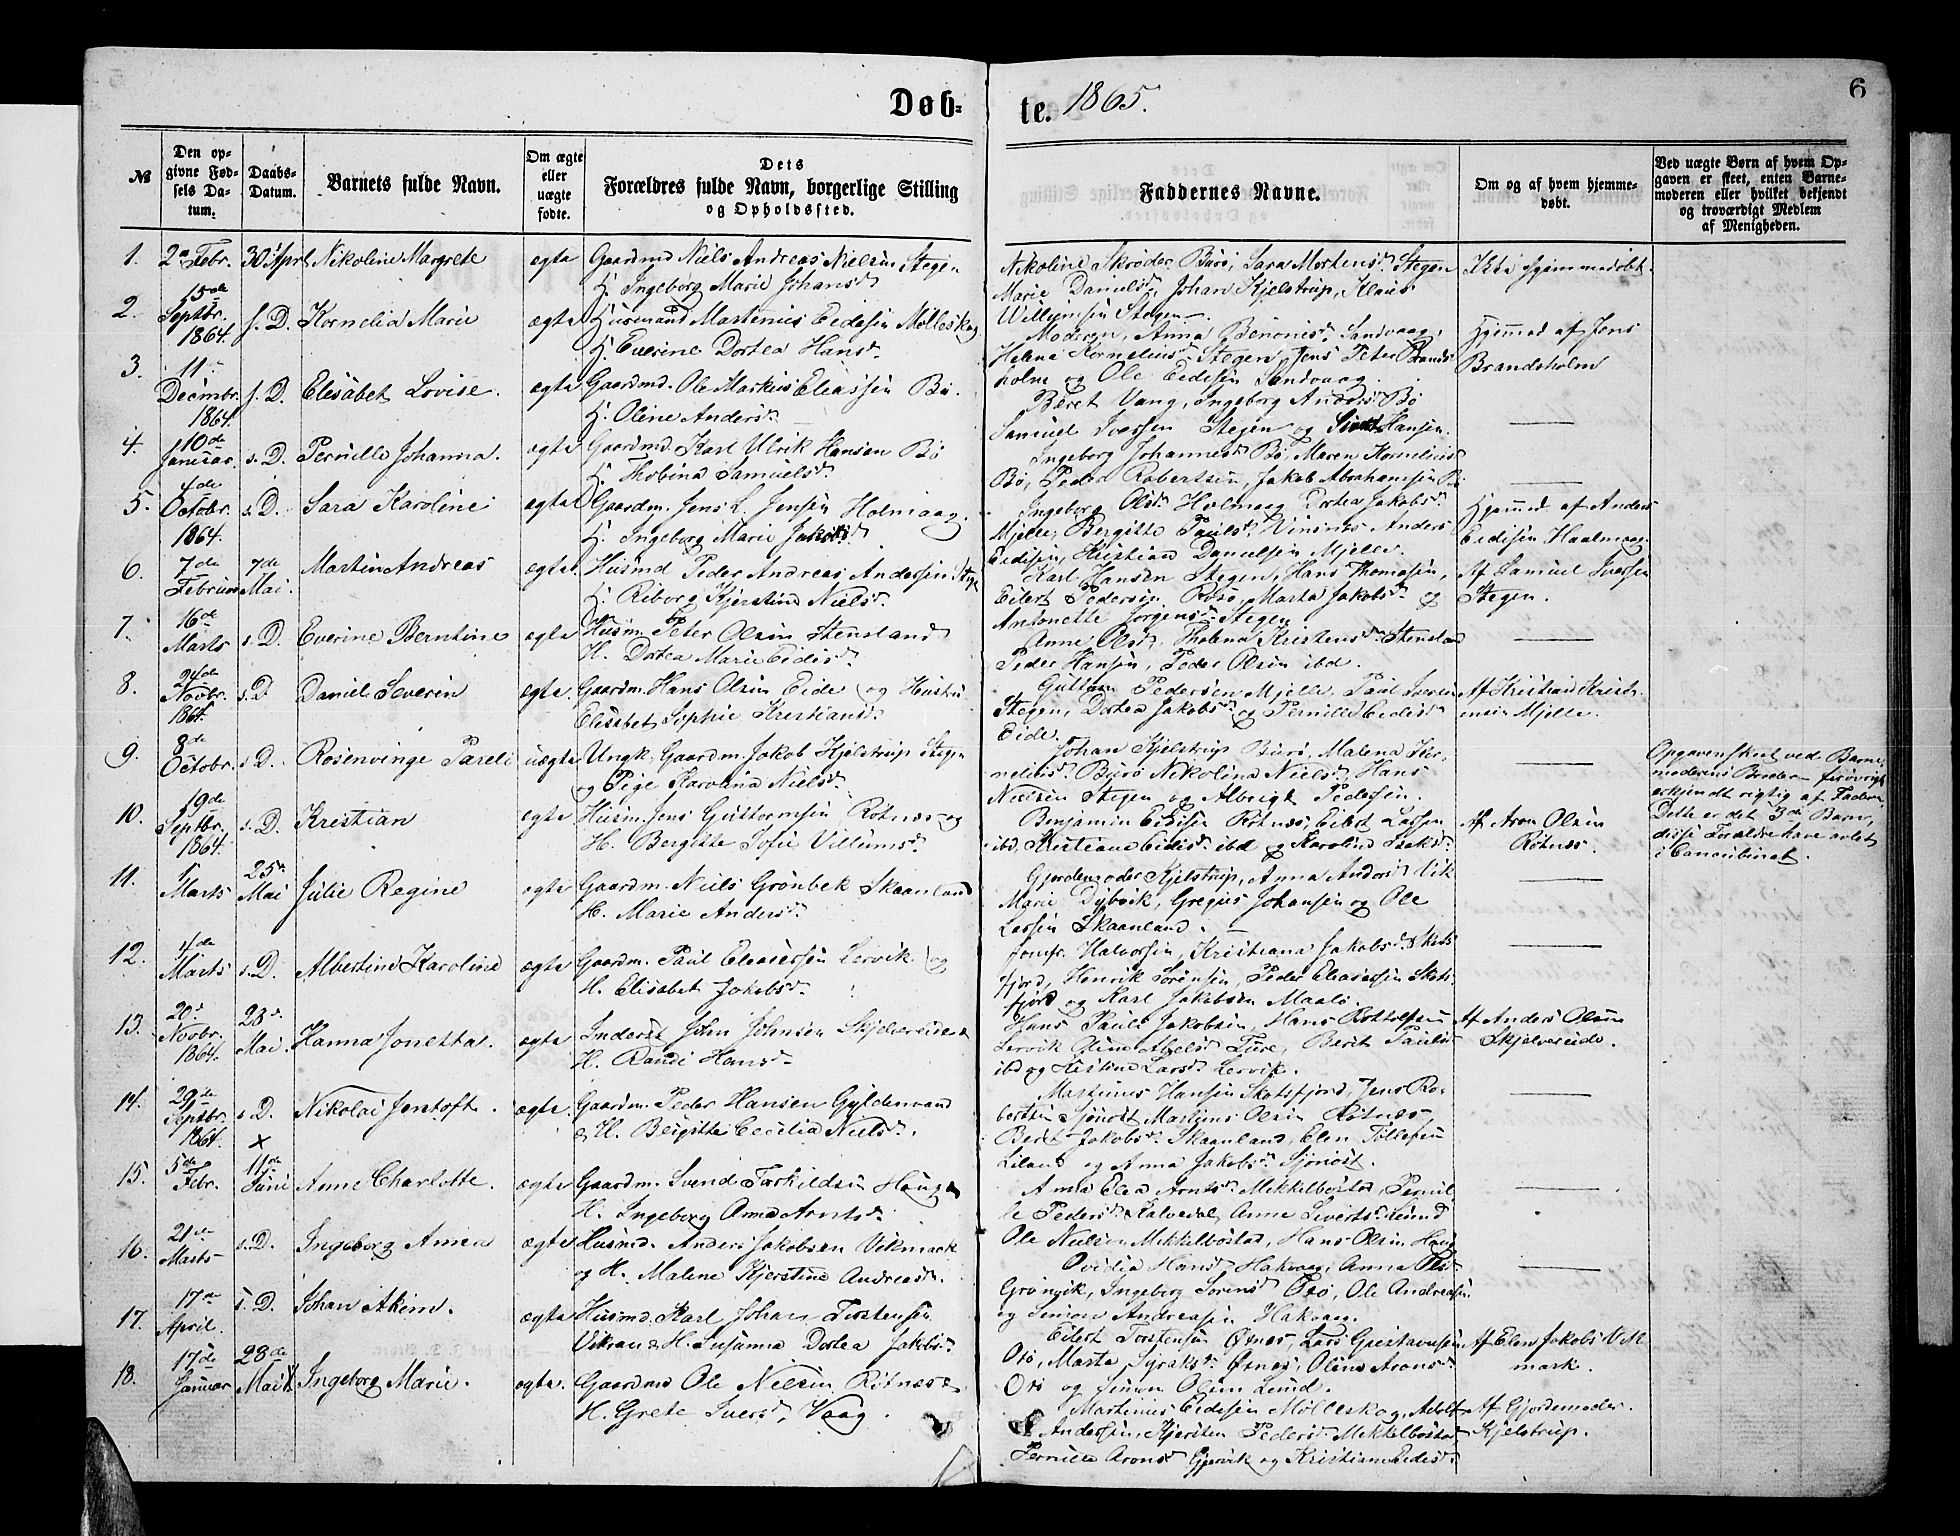 Døb-
te. 1865.
6
№
Den op-
givne Fød-
sels Da-
tum.
Daabs-
Datum.
Barnets fulde Navn.
Om ægte
eller
uægte
fødte.
Dets
Forældres fulde Navn, borgerlige Stilling
og Opholdssted.
Faddernes Navne.
Om og af hvem hjemme-
døbt.
Ved uægte Børn af hvem Op-
gaven er skeet, enten Barne-
moderen eller hvilket bekjendt
og troværdigt Medlem
af Menigheden.
1. 2 Febr. 30 April Nikoline Margrete ægte Gaardmd Niels Andreas Nielsen Stegen
H. Ingeborg Marie Johansd.
Nikoline Skrøder Burø, Sara Mortensd. Stegen
Marie Danielsd., Johan Kjelstrup, Klaus
Willumsen Stegen.
Ikke hjemmedøbt.
2. 15de Septbr. 1864. s. D. Kornelia Marie ægte Husmand Martenius Eidesen Mølleskog
H. Everine Dortea Hansd.
Moderen, Anna Benonisd. Sandvaag,
Helena Kornelius Stegen, Jens Peter Brands-
holm og Ole Eidesen Sandvaag.
Hjemmed af Jens
Brandsholm
3. 11 Decmbr. 1864. s. D. Elisabet Lovise. ægte Gaardmd. Ole Markus Eliassen Bø.
H. Oline Andersd.
Beret Vang, Ingeborg Andersd. Bø
Samuel Iversen Stegen og Hansen.
4. 10de Januar s. D. Pernille Johanna. ægte Gaardmd. Karl Ulrik Hansen Bø
H. Thobina Samuelsd.
Ingeborg Johannesd. Bø, Maren Kornelius
Bø, Peder Robertsen, Jakob Abrahamsen Bø
5. 4de October 1864. s. D. Sara Karoline ægte Gaardm. Jens L. Jensen Holmaag.
H. Ingeborg Marie Jakobsd.
Ingeborg Olsd. Holmaag Dortea Jakobsd.
Mjelle, Bergitte Paulsd. Vinsnes Anders
Eidesen, Kristian Danielsen Mjelle.
Hjemmed af Anders
Eidesen
6. 7de Februar 7de Mai. Martin Andreas ægte Husmd Peder Andreas Andersen Stegen
H. Riborg Kjerstine Nielsd.
Karl Hansen Stegen, Hans Thomesen,
Eilert Pedersen Rosø, Marta Jakobsd. og
Antonette Jørgensd. Stegen
Af Samuel Iversen
Stegen.
7. 16de Marts s. D. Everine Berntine ægte Husm. Peter Olsen Stensland
H. Dortea Marie Eidisd.
Anne Olsd., Tholena Kristensd. Stensland
Peder Hansen, Peder Olsen ibd.
8. 24de Novbr. 1864. s. D Daniel Severin ægte Gaardm. Hans Olsen Eide og Hustru
Elisabet Sophie Kristiansd.
Guttorm Pedersen Mjelle, Paul Iversen
Stegen, Dortea Jakobsd. og Pernille Eidesd.
Eide.
Af Kristian Kristi-
ensen Mjelle.
9. 8de Octobr. s. D. Rosenvinge Pareli uægte Ungk. Gaardm. Jakob Kjelstrup Stegen
og Pige Karoline Nielsd.
Johan Kjelstrup Burø, Malena Kor-
neliusd. Burø Nikolina Nielsd. Hans
Nielsen Stegen og Albrigt Pedersen.
Opgaven skeet ved Barne-
moderens Broder, forøvrigt
erkjendt rigtig af Faderen.
Dette er det 3de Barn,
disse Forældre have avlet
i Concubinat.
10. 19de Septbr. 1864 s. D. Kristian ægte Husm. Jens Guttormsen Røtnes og
H. Bergitte Sofie Villumsd.
Benjamin Eidesen Røtnes, Eilert Larsen
ibd, Kristiane Eidesd. ibd og Karoline Isaksd.
Af Aron Olsen
Røtnes.
11. 1 Marts 25de Mai Julie Regine ægte Gaardm. Niels Grønbek Skaanland
H. Marie Andersd.
Gjordemoder Kjelstrup, Anna Andersd. Vik
Marie Dybvik, Gregus Johansen og Ole
Larsen Skaanland.
12. 4de Marts s. D. Albertine Karoline ægte Gaardm. Paul Eleasersen Lervik og
H. Elisabet Jakobsd.
Jomfr. Halvorsen, Kristiana Jakobsd. Skots-
fjord, Henrik Sørensen, Peder Eleasersen Skots-
fjord og Karl Jakobsen Maalø.
13. 20d Novbr. 1864. 28d Mai. Hanna Jonetta. ægte Inderst John Johnsen Skjelvereide &
H. Randi Hansd.
Hans Paul Jakobsen, Hans Rottolfsen
Lervik Oline Abelsd. Ture, Berit Paulsd.
ibd og Kristine Larsd. Lervik.
Af Anders Olsen
Skjelvereide.
14. 29de Septbr. 1864. s. D. x Nikolai Jentoft. ægte Gaardm. Peder Hansen Gyldenvand
& H. Bergitte Cecilia Nielsd.
Martinus Hansen Skotsfjord, Jens Ro-
bertsen Sjønost Martinus Olsen Røtnes
Beret Jakobsd. Skaanland, Elen Tollefsen
Leland og Anna Jakobsd. Sjønost.
15. 5de Febr. 11de Juni Anne Charlotte. ægte Gaardm. Svend Torkildsen Haug &
H. Ingeborg Anna Arntsd.
Anna Elea Arntsd. Mikkelbostad, Pernil-
le Pedersd. Kalvedal, Anne Sivertsd. Lund
Ole Nielsen Mikkelbostad, Hans Olsen Haug
16. 21de Marts s. D. Ingeborg Anna ægte Husmd. Anders Jakobsen Vikmark
og H. Malene Kjerstine Andreasd.
Ovidia Hansd. Hakvaag, Anna Olsd.
Grønvik, Ingeborg Sorensd. Orø, Ole Andreasen
og Simon Andreasen Hakvaag.
17. 17de April. s. D. Johan Akim. ægte Husmd. Karl Johan Torstensen
Vikran & H. Susanna Dortea Jakobsd.
Eilert Torstensen Øtnes, Lars Gustavusen
Orø, Marta Syraksd. Øsnes, Oline Aronsd.
Orø og Simon Olsen Lund.
Af Elen Jakobsd. Vik-
mark.
18. 17de Januar 28de Mai Ingeborg Marie. ægte. Gaardmd Ole Nielsen Røtnes &
H. Grete Iversd. Vaag.
Martinius Eidesen Mølleskog, Adolf
Andersen, Kjersten Pedersd. Mikkelbostad
Pernille Aronsd. Gjervik og Kristiane Eidesd.
Af Gjordemoder
Kjelstrup.